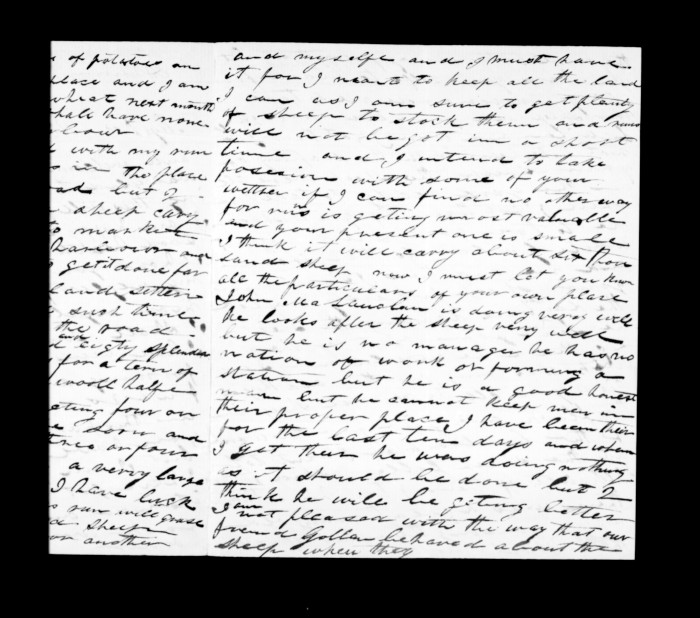 of potatoes on
place and I am
what next month
shall have none
with my run
in the place
but if
sheep carry
to market
harbour and
get it done for
land
such time
the road
and eighty splendid
for a term of
wooll half
eting four on
soon and
or four
a verry large
I have luck
run will grase
sheep
or another
and myselfe and I must have
it for I want to keep all the land
I can as I am sure to get planty
of sheep to stock them and runs
will not be got inn a short
time and I intend to take
posesion with some of your
wether if I can find no other way
for runs is geting most valuable
and your present one is small
I think it will carry about six thou
sand sheep now I must let you know
all the particulars of your own place
John Ma Lauclan is doing very well
he looks after the sheep very well
but he is no manager he has no
nation of work or forming a
station but he is a good honest
man but he cannot keep men in
their proper place I have been their
for the last ten days and when
I got ther he was doing nothing
as it should be done but I
think he will be geting better
I am not pleased with the way that our
frend Gollan behaved about the
sheep when they